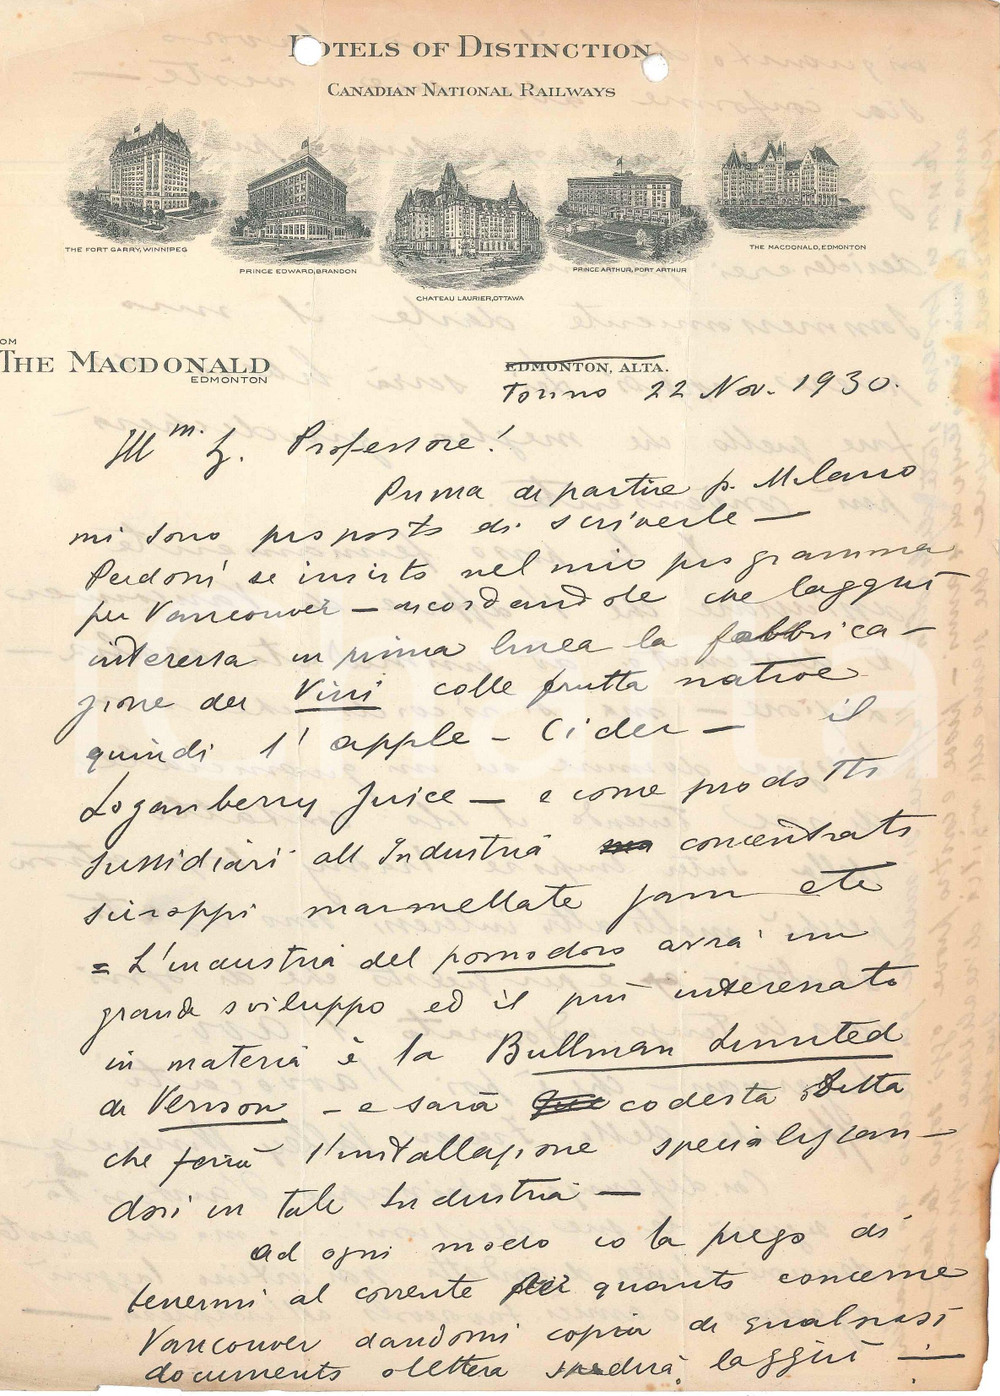 HOTELS OF DISTINCTION
CANADIAN NATIONAL RAILWAYS
THE FORT GARRY, WINNIPEG
PRINCE EDWARD, BRANDON
CHATEAU LAURIER, OTTAWA
PRINCE ARTHUR, PORT ARTHUR
THE MACDONALD, EDMONTON
OM
THE MACDONALD
EDMONTON
EDMONTON, ALTA.
Torino 22 Nov. 1930.
Ill m. Professore!
Prima di partire p. Milano
mi sono proposto di scriverle —
Perdoni se insisto nel mio programma
per Vancouver — ricordandole che laggiù
interessa in prima linea la fabbrica-
zione dei Vini colle frutta native
quindi l'apple - Cider — il
Loganberry Juice — e come prodotti
sussidiari all Industria concentrati
sciroppi marmellate jam etc
= L'industria del pomodoro avrà un
grande sviluppo ed il più interessato
in materia è la Bullman Limited
di Vernon — e sarà codesta Ditta
che farà l'installazione specializzan-
dosi in tale Industria —
ad ogni modo io la prego di
tenermi al corrente per quanto concerne
Vancouver dandomi copia di qualsiasi
documento o lettera laggiù —